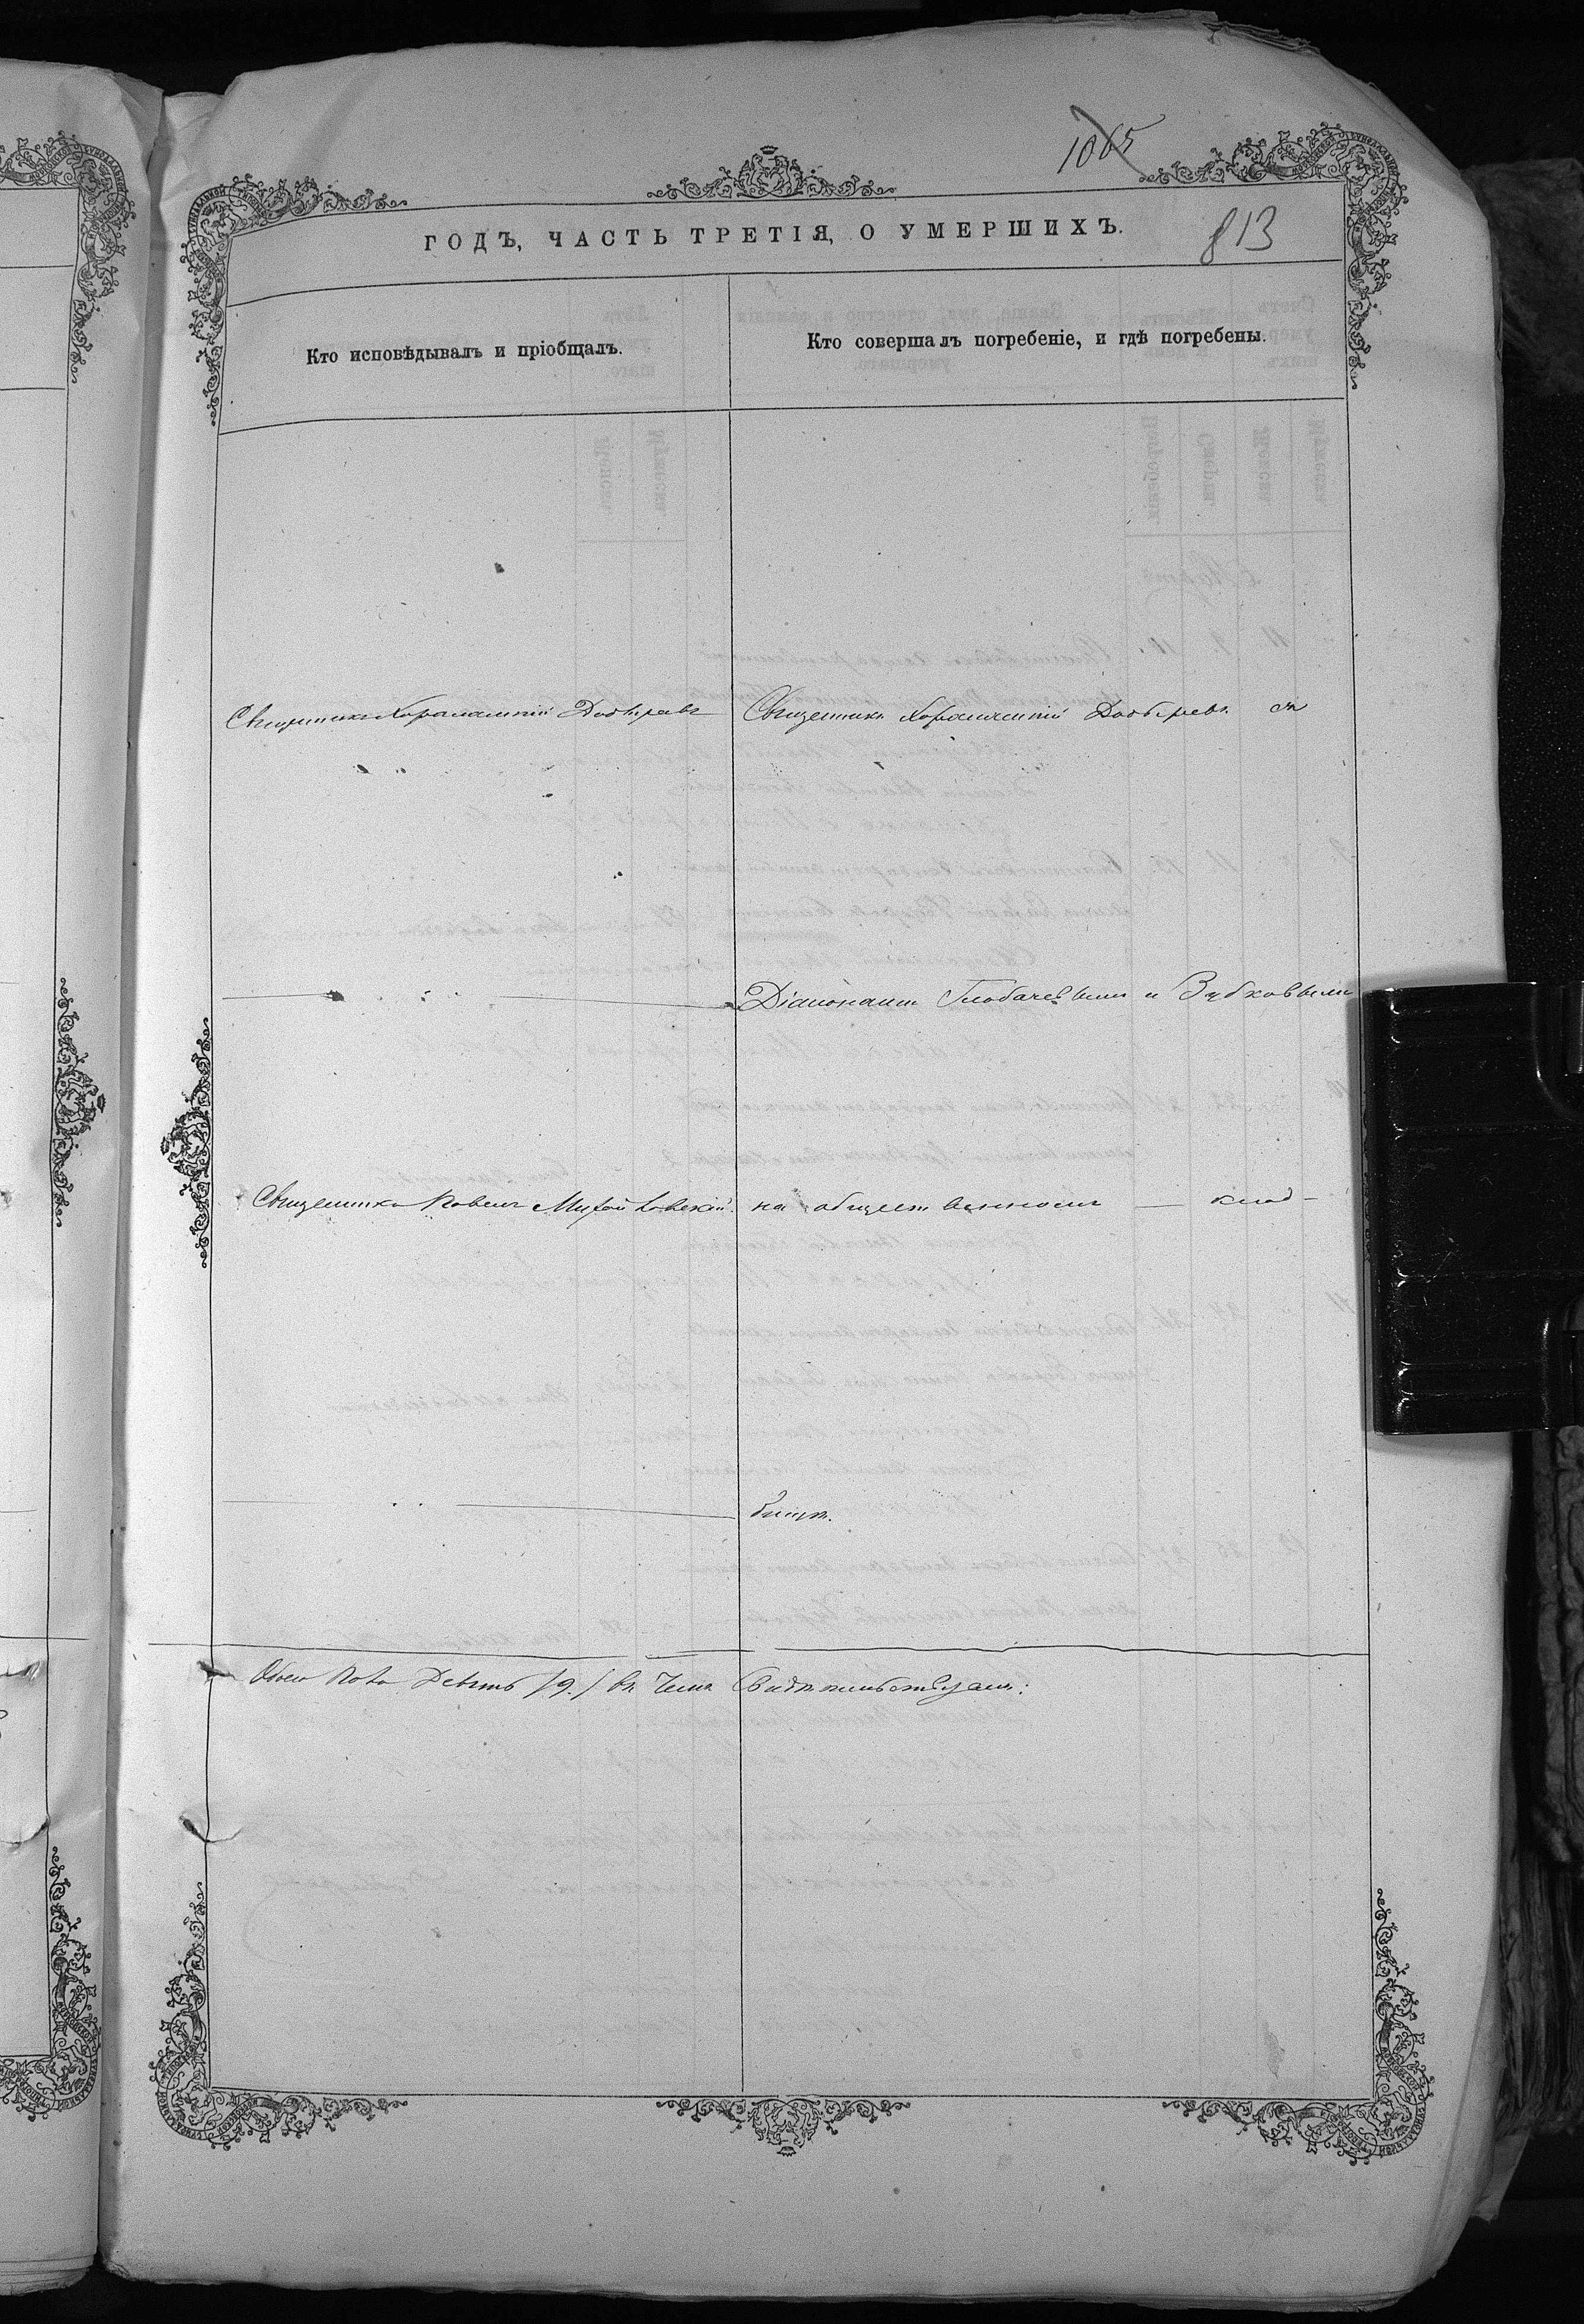 1065
813
ГОДЪ, ЧАСТЬ ТРЕТІЯ, О УМЕРШИХЪ.
Кто исповѣдывалъ и пріобщалъ.
Кто совершалъ погребеніе, и гдѣ погребены.
Священникъ Харалампій Добыревъ
Священникъ Харалампій Добыревъ съ
Діаконами Глобачевымъ и Зубковымъ
Священникъ Павелъ
на общественномъ — клад-
бищѣ.
Обоего Пола Девять /9./ въ Чемъ Свидѣтельствуемъ: